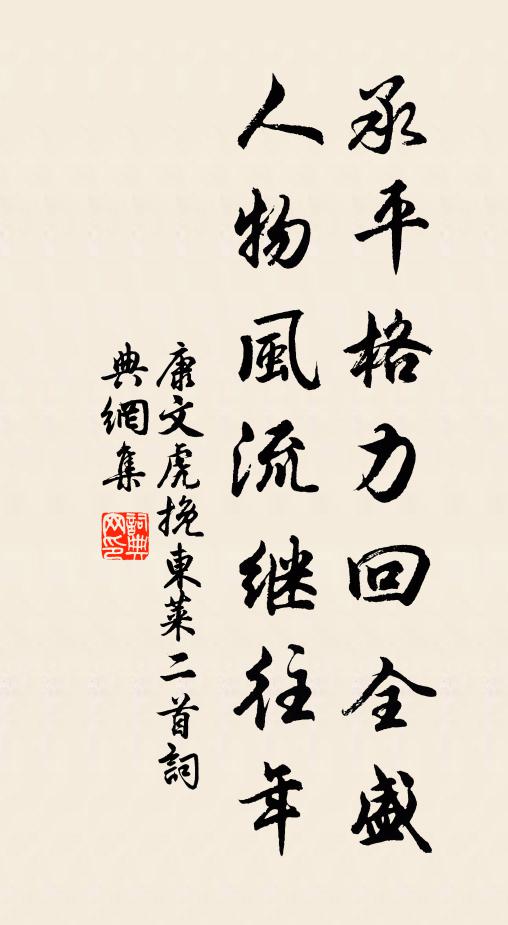 承平格力回全盛
人物風流继往年
康文虎挽東萊二首詞
典網集
詞典网印